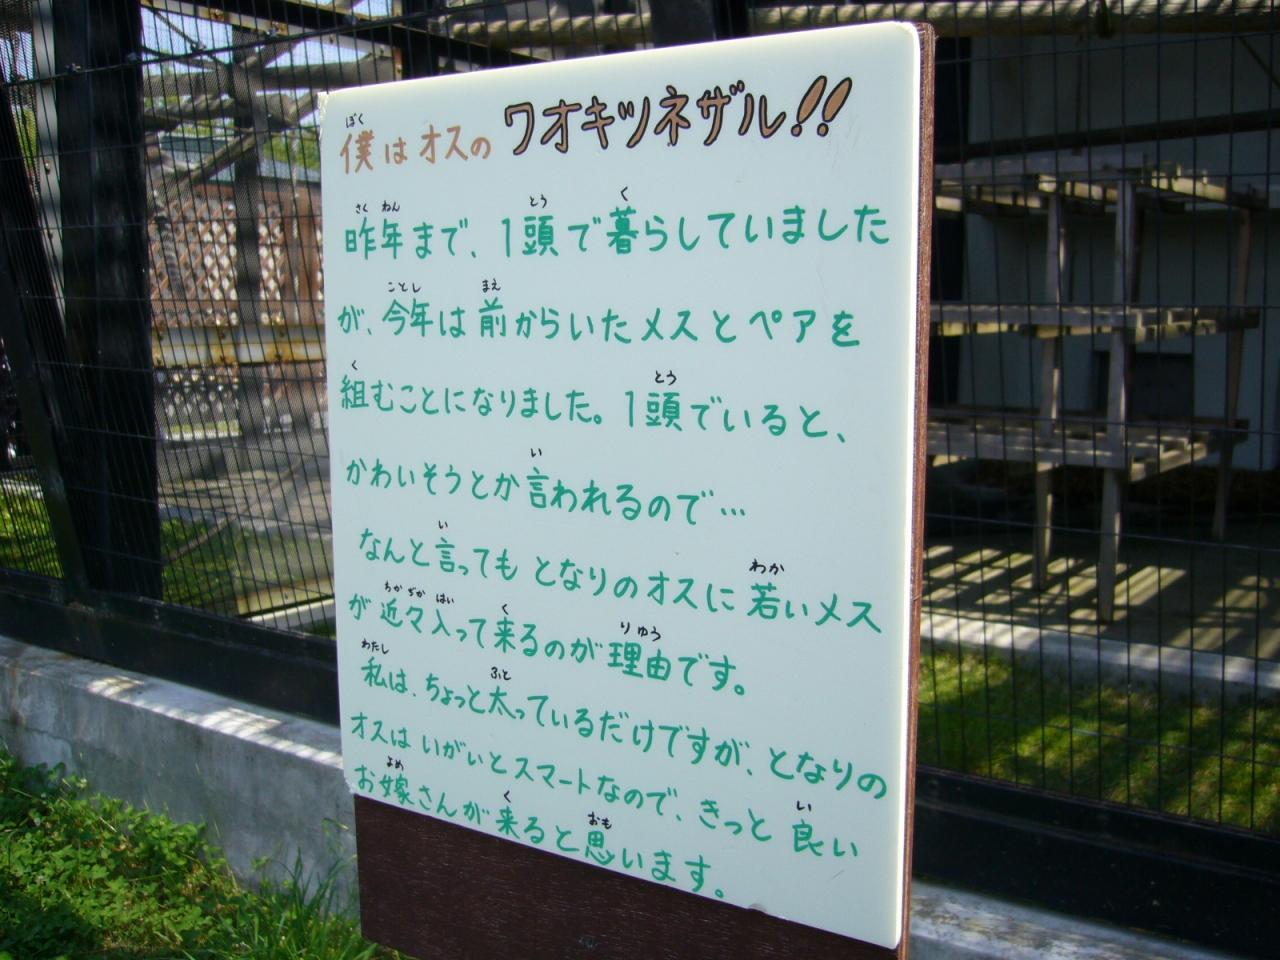 僕はオスの ワオキツネザル!!
昨年まで、1頭で暮らしていました
が、今年は前からいたメスとペアを
組むことになりました。1頭でいると、
かわいそうとか言われるので…
なんと言っても となりのオスに若いメス
が近々入って来るのが理由です。
私は、ちょっと太っているだけですが、となりの
オスは いがいとスマートなので、きっと良い
お嫁さんが来ると思います。